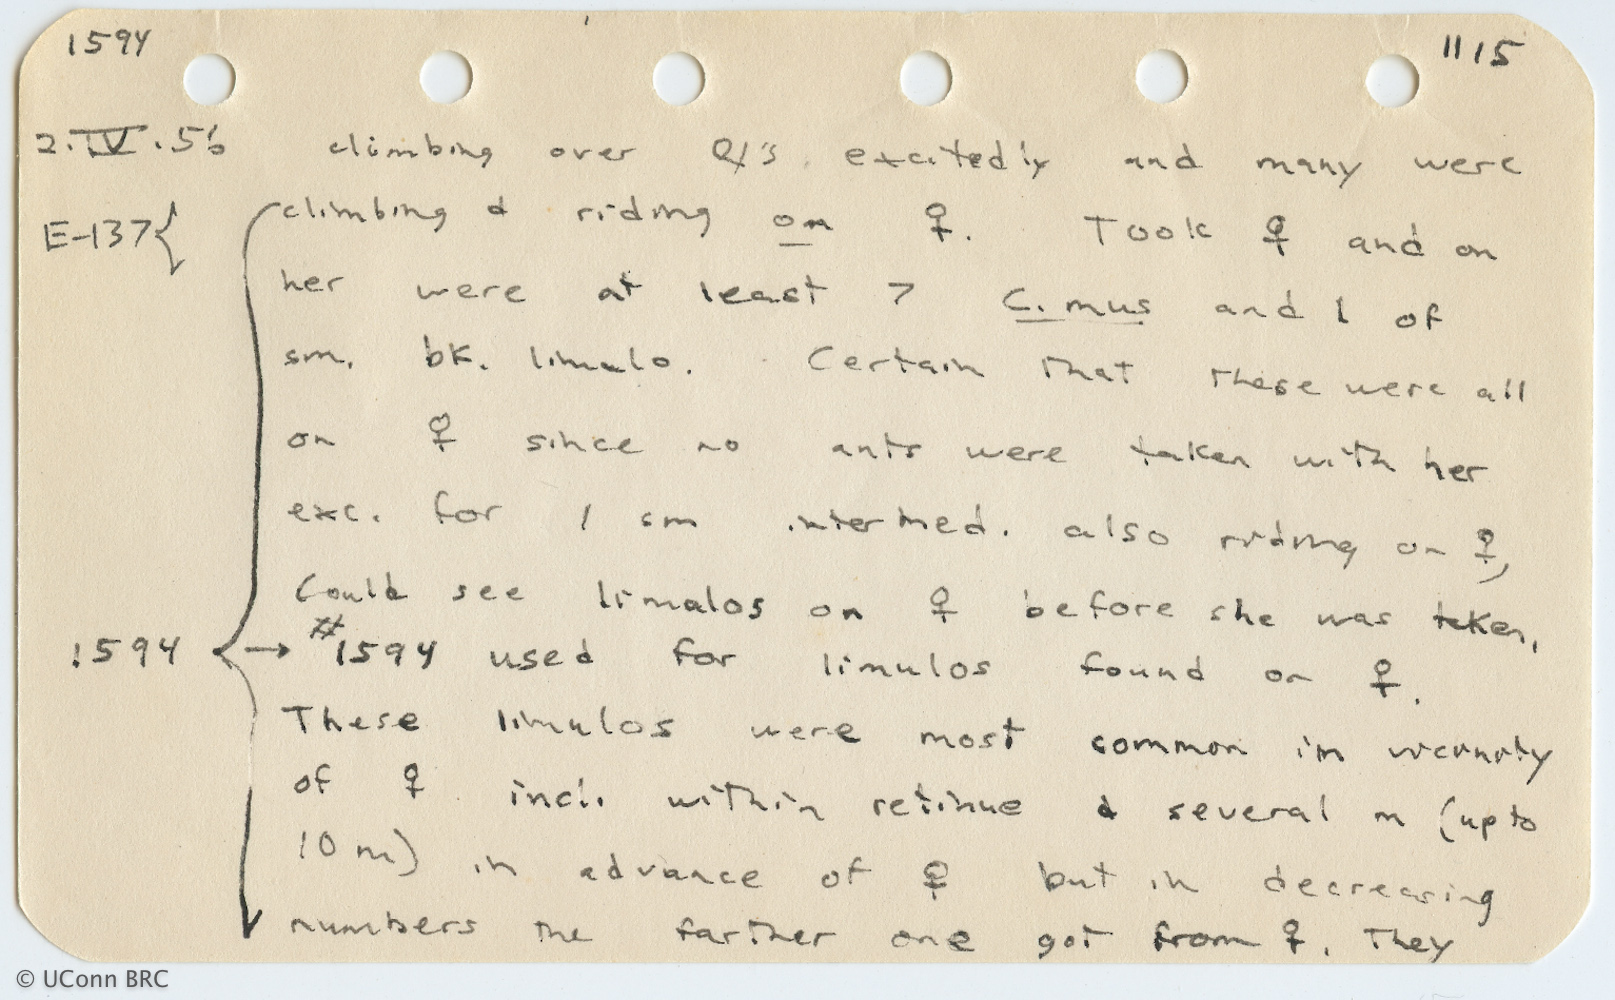 1594 " 15
2.IV.56 climbing over ♀'s excitedly and many were
E-137{ climbing & riding on ♀. Took ♀ and on
her were at least 7 C. mus and 1 of
sm. bk. limulo. Certain that these were all
on ♀ since no ants were taken with her
exc. for 1 sm intermed. also riding on ♀,
Could see limulos on ♀ before she was taken,
1594 → #1594 used for limulos found on ♀.
These limulos were most common in vicinity
of ♀ incl. within retinue & several m (up to
10 m) in advance of ♀ but in decreasing
numbers the farther one got from ♀. They
© UConn BRC